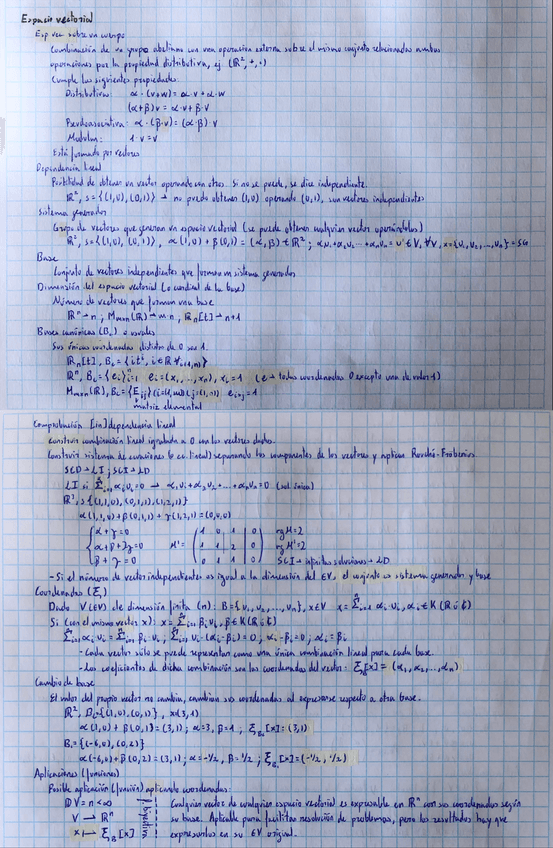 Espacio vectorial
Esp vec sobre un cuerpo
Combinación de un grupo abeliano con una operación externa sobre el mismo conjunto relacionadas ambas
operaciones por la propiedad distributiva, ej. (R², +, ·)
Cumple las siguientes propiedades:
Distributiva: α · (v+w) = α·v + α·w
(α+β)v = α·v + β·v
Pseudoasociativa: α · (β·v) = (α·β) · v
Modulan: 1·v = v
Está formado por vectores
Dependencia lineal
Posibilidad de obtener un vector operando con otros. Si no se puede, se dice independiente.
R², s = {(1,0), (0,1)} → no puedo obtener (1,0) operando (0,1), son vectores independientes
Sistema generador
Grupo de vectores que generan un espacio vectorial (se puede obtener cualquier vector operándolos)
R², s={(1,0), (0,1)}, α(1,0) + β(0,1) = (α,β) ∈ R²; αv₁+α₂v₂...+αₙvₙ = v ∈ V, ∀v, x={v₁,v₂,...,vₙ} = SG
Base
Conjunto de vectores independientes que forman un sistema generador
Dimensión del espacio vectorial (o cardinal de la base)
Número de vectores que forman una base
Rⁿ → n ; Mₘₓₙ(R) → m·n ; Rₙ[t] → n+1
Bases canónicas (B꜀) o usuales
Sus únicas coordenadas distintas de 0 son 1.
Rₙ[t], B꜀ = {itⁱ, i∈R ∀ᵢ₊₁,ₙ}
Rⁿ, B꜀ = {eᵢ}ⁿᵢ₌₁ eᵢ=(x₁,...,xₙ), xᵢ=1 (e → todas coordenadas 0 excepto una de valor 1)
Mₘₓₙ(R), B꜀ = {Eᵢⱼ} (i=(1,m)) (j=(1,n)) eᵢₓⱼ = 1
matriz elemental
Comprobación [in]dependencia lineal
Construir combinación lineal igualada a 0 con los vectores dados.
Construir sistema de ecuaciones (o ec. lineal) separando las componentes de los vectores y aplicar Rouché-Frobenius.
SCD → LI ; SCI → LD
LI si Σⁿᵢ₌₁ αᵢvᵢ = 0 → α₁v₁+α₂v₂+...+αₙvₙ = 0 (sol. única)
R³, s{(1,1,0), (0,1,1), (1,2,1)}
α(1,1,0) + β(0,1,1) + γ(1,2,1) = (0,0,0)
{ α + γ = 0 M' = ( 1 0 1 | 0 ) rg M = 2
α + β + 2γ = 0 1 1 2 | 0 rg M' = 2
β + γ = 0 0 1 1 | 0 SCI → infinitas soluciones → LD
- Si el número de vector independientes es igual a la dimensión del EV, el conjunto es sistema generador y base
Coordenadas (ξ)
Dado V (EV) de dimensión finita (n): B={v₁,v₂,...,vₙ}, x∈V x = Σⁿᵢ₌₁ αᵢ·vᵢ, αᵢ∈K (R ó ₵)
Si (con el mismo vector x): x = Σⁿᵢ₌₁ βᵢvᵢ, β∈K (R ó ₵)
Σⁿᵢ₌₁ αᵢvᵢ = Σⁿᵢ₌₁ βᵢ·vᵢ ; Σⁿᵢ₌₁ vᵢ·(αᵢ-βᵢ) = 0 ; αᵢ-βᵢ = 0 ; αᵢ = βᵢ
- Cada vector sólo se puede representar como una única combinación lineal para cada base.
- Los coeficientes de dicha combinación son las coordenadas del vector: ξ_B[x] = (α₁,α₂,...,αₙ)
Cambio de base
El valor del propio vector no cambia, cambian sus coordenadas al expresarse respecto a otra base.
R², B꜀={(1,0), (0,1)}, x=(3,1)
α(1,0) + β(0,1) = (3,1); α=3, β=1 ; ξ_B꜀[x] = (3,1)
B₁={(-6,0), (0,2)}
α(-6,0) + β(0,2) = (3,1) ; α=-1/2, β=1/2 ; ξ_B₁[x] = (-1/2, 1/2)
Aplicaciones (funciones)
Posible aplicación (función) aplicando coordenadas:
DV = n < ∞
V → Rⁿ
x → ξ_B[x]
f. biyectiva
Cualquier vector de cualquier espacio vectorial es expresable en Rⁿ con sus coordenadas según
su base. Aplicable para facilitar resolución de problemas, pero los resultados hay que
expresarlos en su EV original.